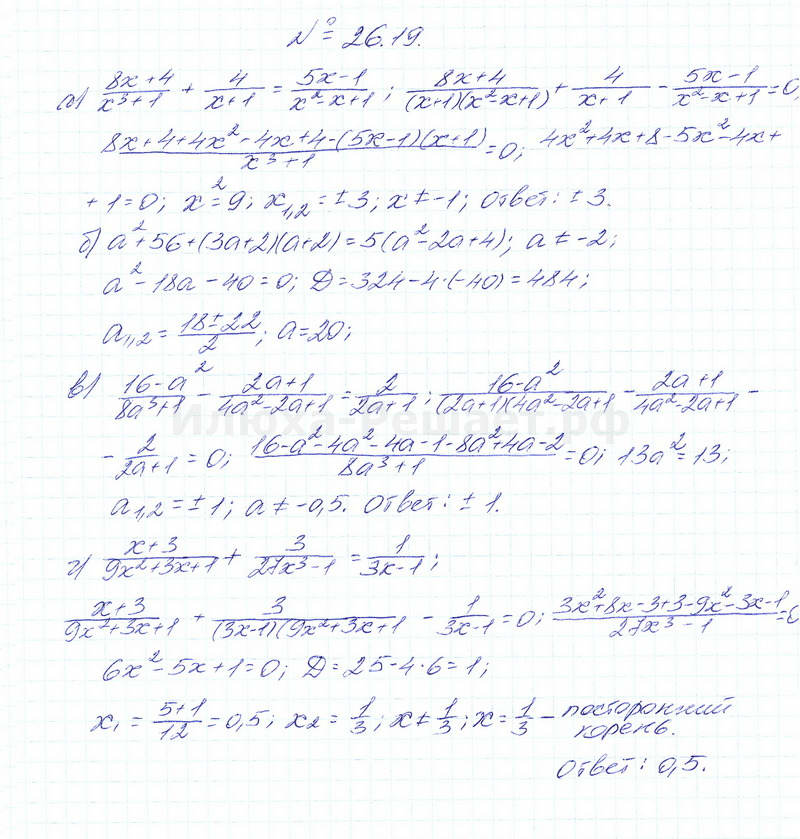 № 26.19.
а) (8x+4)/(x³+1) + 4/(x+1) = (5x-1)/(x²-x+1); (8x+4)/((x+1)(x²-x+1)) + 4/(x+1) - (5x-1)/(x²-x+1) = 0;
(8x+4+4x²-4x+4-(5x-1)(x+1))/(x³+1) = 0; 4x²+4x+8-5x²-4x+
+1=0; x²=9; x₁,₂=±3; x≠-1; Ответ: ±3.
б) a²+56+(3a+2)(a+2)=5(a²-2a+4); a≠-2;
a²-18a-40=0; Д=324-4·(-40)=484;
a₁,₂ = (18±22)/2; a=20;
в) (16-a²)/(8a³+1) - (2a+1)/(4a²-2a+1) = 2/(2a+1); (16-a²)/((2a+1)(4a²-2a+1) - (2a+1)/(4a²-2a+1) -
Илюха-Решает.рф
- 2/(2a+1) = 0; (16-a²-4a²-4a-1-8a²+4a-2)/(8a³+1) = 0; 13a²=13;
a₁,₂=±1; a≠-0,5. Ответ: ±1.
г) (x+3)/(9x²+3x+1) + 3/(27x³-1) = 1/(3x-1);
(x+3)/(9x²+3x+1) + 3/((3x-1)(9x²+3x+1) - 1/(3x-1) = 0; (3x²+8x-3+3-9x²-3x-1)/(27x³-1) = 0
6x²-5x+1=0; Д=25-4·6=1;
x₁ = (5+1)/12 = 0,5; x₂ = 1/3; x≠1/3; x=1/3 - посторонний
корень.
Ответ: 0,5.